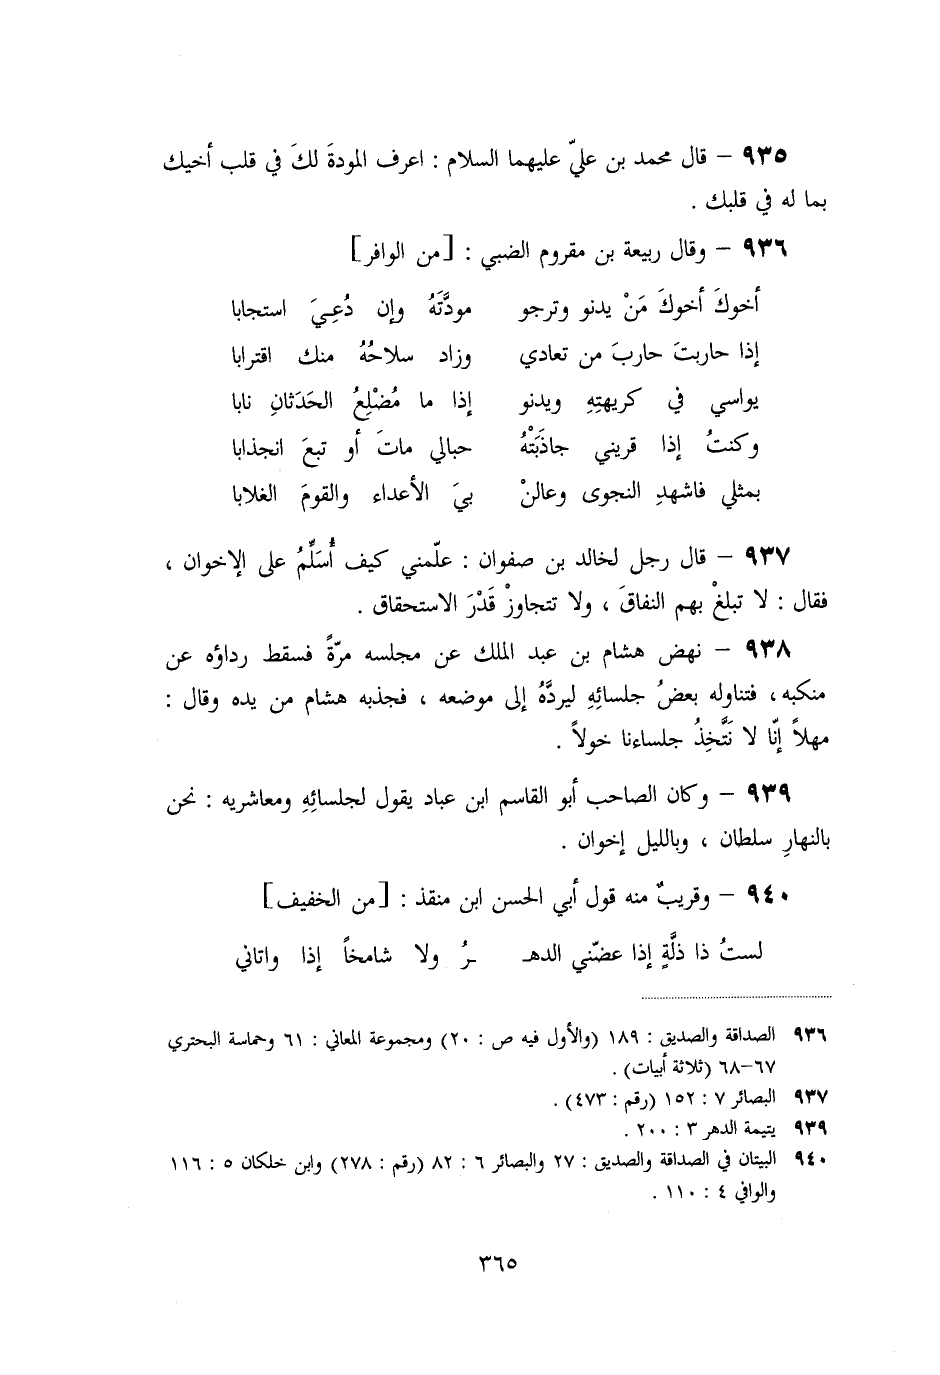 ٩٣٥ – قال محمد بن عليّ عليهما السلام : اعرف المودةَ لكَ في قلب أخيك
بما له في قلبك .
٩٣٦ – وقال ربيعة بن مقروم الضبي : [من الوافر]
أخوكَ أخوكَ مَنْ يدنو وترجو مودَّتَهُ وإن دُعِيَ استجابا
إذا حاربتَ حاربَ من تعادي وزاد سلاحُهُ منك اقترابا
يواسي في كريهتِهِ ويدنو إذا ما مُضْلِعُ الحَدَثانِ نابا
وكنتُ إذا قريني جاذَبَتْهُ حبالي ماتَ أو تبعَ انجذابا
بمثلي فاشهدِ النجوى وعالنْ بيَ الأعداء والقومَ الغلابا
٩٣٧ – قال رجل لخالد بن صفوان : علّمني كيف أُسَلِّمُ على الإخوان ،
فقال : لا تبلغْ بهم النفاقَ ، ولا تتجاوزْ قَدْرَ الاستحقاق .
٩٣٨ – نهض هشام بن عبد الملك عن مجلسه مرّةً فسقط رداؤه عن
منكبه ، فتناوله بعضُ جلسائِهِ ليردَّهُ إلى موضعه ، فجذبه هشام من يده وقال :
مهلاً إنّا لا نَتَّخِذُ جلساءنا خولاً .
٩٣٩ – وكان الصاحب أبو القاسم ابن عباد يقول لجلسائِهِ ومعاشريه : نحن
بالنهارِ سلطان ، وبالليل إخوان .
٩٤٠ – وقريبٌ منه قول أبي الحسن ابن منقذ : [من الخفيف]
لستُ ذا ذلَّةٍ إذا عضّني الدهـ ـرُ ولا شامخاً إذا واتاني
٩٣٦ الصداقة والصديق : ١٨٩ (والأول فيه ص : ٢٠) ومجموعة المعاني : ٦١ وحماسة البحتري
٦٧–٦٨ (ثلاثة أبيات) .
٩٣٧ البصائر ٧ : ١٥٢ (رقم : ٤٧٣) .
٩٣٩ يتيمة الدهر ٣ : ٢٠٠ .
٩٤٠ البيتان في الصداقة والصديق : ٢٧ والبصائر ٦ : ٨٢ (رقم : ٢٧٨) وابن خلكان ٥ : ١١٦
والوافي ٤ : ١١٠ .
٣٦٥